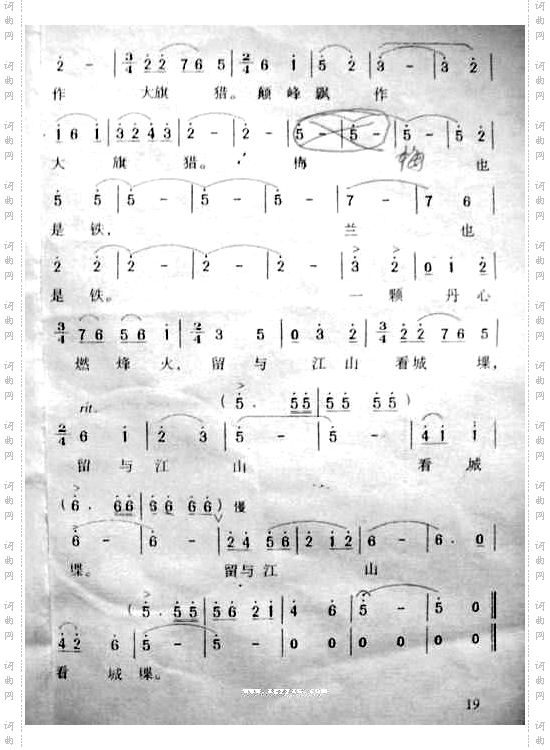 2 - | 3/4 2 2 7 6 5 | 2/4 6 i | 5 2 | 3 - | 3 2 |
作 大旗 猎。 巅 峰 飘 作
i 6 i | 3 2 4 3 | 2 - | 2 - | 5 - | 5 - | 5 - | 5 2 |
大 旗 猎。 梅 梅 也
5 5 | 5 - | 5 - | 5 - | 7 - | 7 6 |
是 铁, 兰 也
2 2 | 2 - | 2 - | 2 - | 3 2 | 0 i 2 |
是 铁。 一 颗 丹 心
3/4 7 6 5 6 i | 2/4 3 5 | 0 3 2 | 3/4 2 2 7 6 5 |
燃 烽 火, 留 与 江 山 看 城 堞,
rit. ( 5 . 5 5 | 5 5 5 5 )
2/4 6 i | 2 3 | 5 - | 5 - | 4 i i |
留 与 江 山 看 城
( 6 . 6 6 | 6 6 6 6 ) 慢
6 - | 6 - | 2 4 5 6 | 2 i 2 | 6 - | 6 . 0 |
堞。 留 与 江 山
( 5 . 5 5 | 5 6 2 i | 4 6 | 5 - | 5 0 ||
4 2 6 | 5 - | 5 - | 0 0 | 0 0 | 0 0 ||
看 城 堞。
19